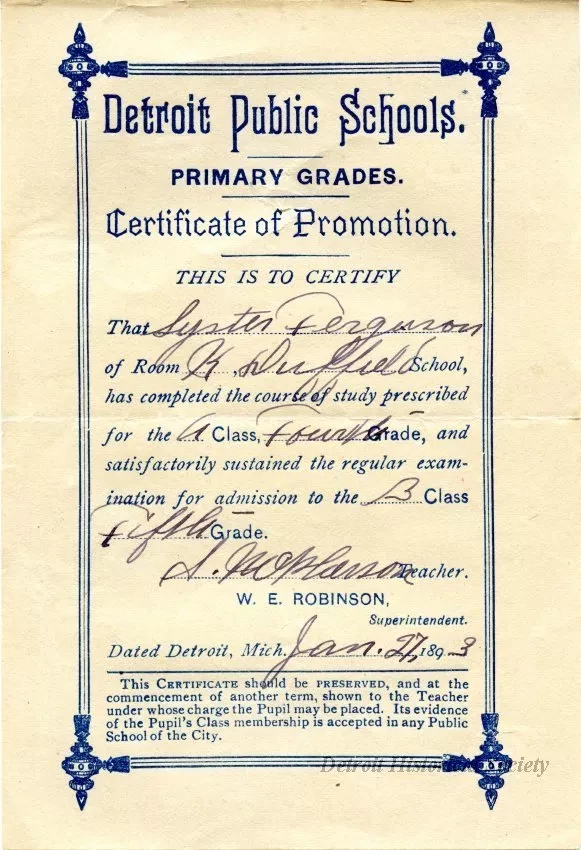 Detroit Public Schools.
PRIMARY GRADES.
Certificate of Promotion.
THIS IS TO CERTIFY
That Lyster Ferguson
of Room K, Duffield School,
has completed the course of study prescribed
for the A Class, Fourth Grade, and
satisfactorily sustained the regular exam-
ination for admission to the B Class
Fifth Grade.
S. Teacher.
W. E. ROBINSON,
Superintendent.
Dated Detroit, Mich. Jan. 27, 1893
This CERTIFICATE should be PRESERVED, and at the
commencement of another term, shown to the Teacher
under whose charge the Pupil may be placed. Its evidence
of the Pupil's Class membership is accepted in any Public
School of the City.
Detroit Historical Society